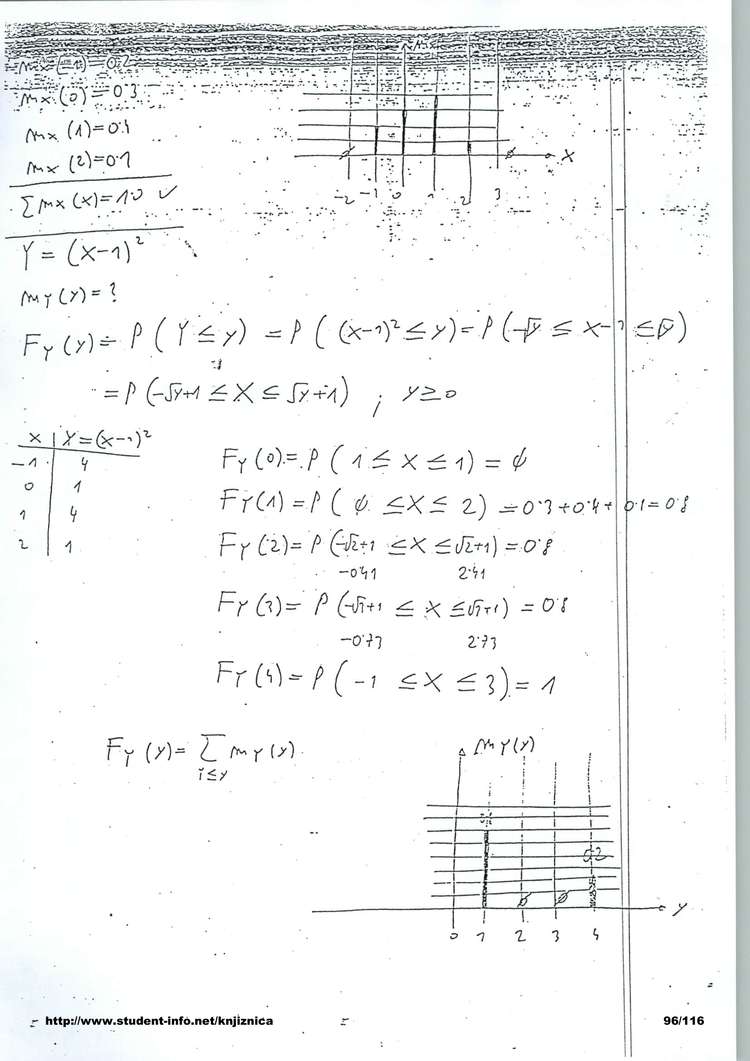 mx (-1) = 0.2
mx (0) = 0.3
mx (1) = 0.4
mx (2) = 0.1
∑ mx (x) = 1.0 ✓
mx
x
-2 -1 0 1 2 3
Y = (x-1)²
mY (y) = ?
FY (y) = P (Y ≤ y) = P ((x-1)² ≤ y) = P (-√y ≤ x-1 ≤ √y)
= P (-√y+1 ≤ X ≤ √y+1) ; y ≥ 0
x | Y = (x-1)²
-1 | 4
0 | 1
1 | 4
2 | 1
FY (0) = P (1 ≤ X ≤ 1) = ∅
FY (1) = P (∅ ≤ X ≤ 2) = 0.3 + 0.4 + 0.1 = 0.8
FY (2) = P (-√2+1 ≤ X ≤ √2+1) = 0.8
-0.41 2.41
FY (3) = P (-√3+1 ≤ X ≤ √3+1) = 0.8
-0.73 2.73
FY (4) = P (-1 ≤ X ≤ 3) = 1
FY (y) = ∑ mY (y)
i ≤ y
mY (y)
0.2
y
0 1 2 3 4
http://www.student-info.net/knjiznica
96/116